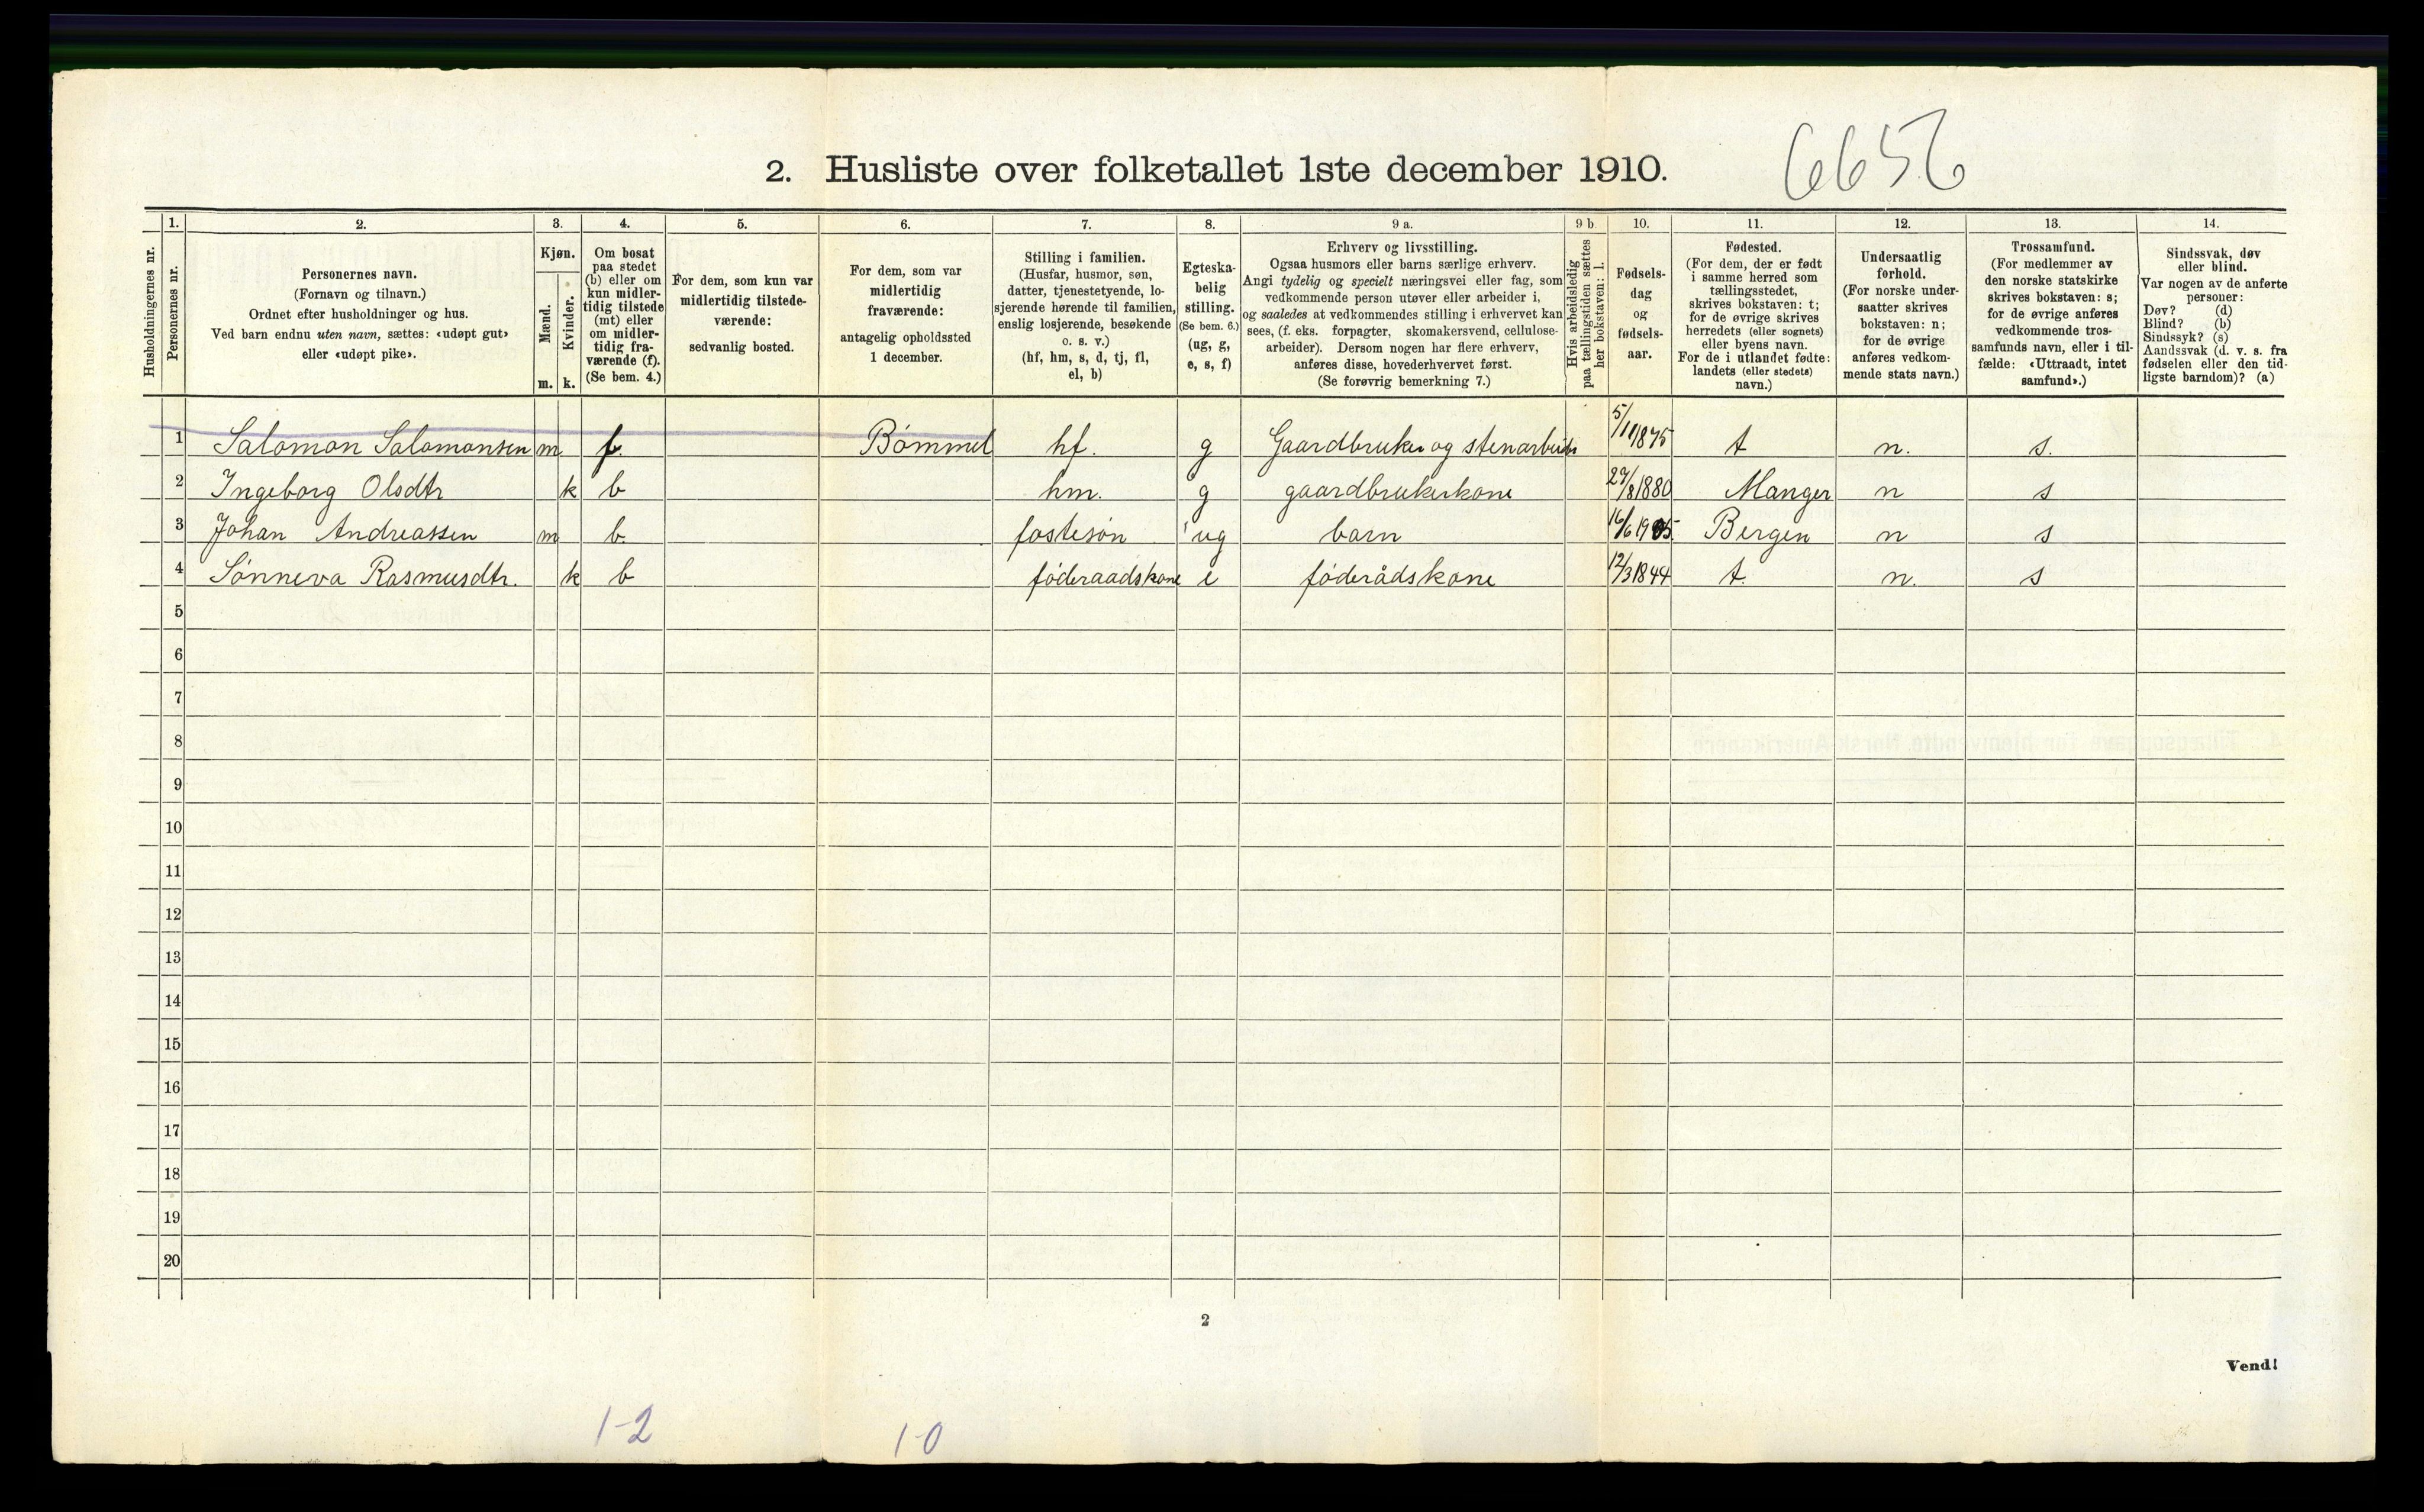 6656
2. Husliste over folketallet 1ste december 1910.
Husholdningernes nr.
1. Personernes nr.
2. Personernes navn.
(Fornavn og tilnavn.)
Ordnet efter husholdninger og hus.
Ved barn endnu uten navn, sættes: «udøpt gut»
eller «udøpt pike».
3. Kjøn.
Mænd. m.
Kvinder. k.
4. Om bosat
paa stedet
(b) eller om
kun midler-
tidig tilstede
(mt) eller
om midler-
tidig fra-
værende (f).
(Se bem. 4.)
5. For dem, som kun var
midlertidig tilstede-
værende:
sedvanlig bosted.
6. For dem, som var
midlertidig
fraværende:
antagelig opholdssted
1 december.
7. Stilling i familien.
(Husfar, husmor, søn,
datter, tjenestetyende, lo-
sjerende hørende til familien,
enslig losjerende, besøkende
o. s. v.)
(hf, hm, s, d, tj, fl,
el, b)
8. Egteska-
belig
stilling.
(Se bem. 6.)
(ug, g,
e, s, f)
9 a. Erhverv og livsstilling.
Ogsaa husmors eller barns særlige erhverv.
Angi tydelig og specielt næringsvei eller fag, som
vedkommende person utøver eller arbeider i,
og saaledes at vedkommendes stilling i erhvervet kan
sees, (f. eks. forpagter, skomakersvend, cellulose-
arbeider). Dersom nogen har flere erhverv,
anføres disse, hovederhvervet først.
(Se forøvrig bemerkning 7.)
9 b Hvis arbeidsledig
paa tællingstiden sættes
her bokstaven: l.
10. Fødsels-
dag
og
fødsels-
aar.
11. Fødested.
(For dem, der er født
i samme herred som
tællingsstedet,
skrives bokstaven: t;
for de øvrige skrives
herredets (eller sognets)
eller byens navn.
For de i utlandet fødte:
landets (eller stedets)
navn.)
12. Undersaatlig
forhold.
(For norske under-
saatter skrives
bokstaven: n;
for de øvrige
anføres vedkom-
mende stats navn.)
13. Trossamfund.
(For medlemmer av
den norske statskirke
skrives bokstaven: s;
for de øvrige anføres
vedkommende tros-
samfunds navn, eller i til-
fælde: «Uttraadt, intet
samfund».)
14. Sindssvak, døv
eller blind.
Var nogen av de anførte
personer:
Døv? (d)
Blind? (b)
Sindssyk? (s)
Aandssvak (d. v. s. fra
fødselen eller den tid-
ligste barndom)? (a)
1 Salomon Salomonsen m f. Bømmel hf. g Gaardbruker og stenarbeider 5/11 1875 t n. s.
2 Ingeborg Olsdtr k b hm. g gaardbrukerkone 29/8 1880 Manger n s
3 Johan Andreassen m b. fostesøn ug barn 16/6 1905 Bergen n s
4 Sønneva Rasmusdtr. k b føderaadskone e føderådskone 12/3 1844 t. n. s
5
6
7
8
9
10
11
12
13
14
15
16
17
18
19
20
2
Vend!
1-2
1-0